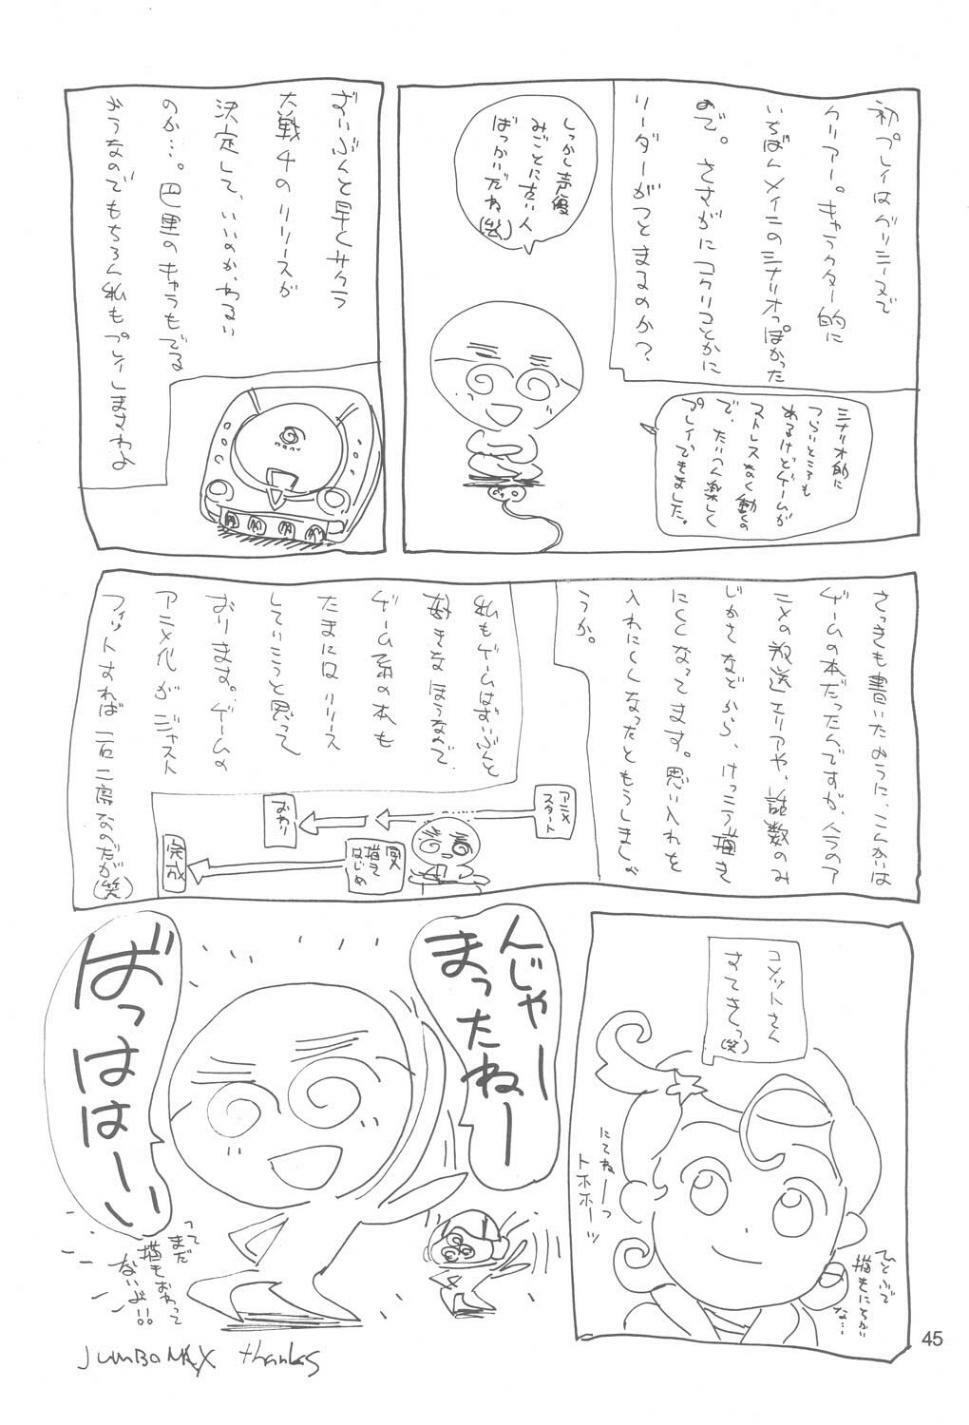 初プレイはグリシーヌで
クリアー。キャラクター的に
いちばんメインのシナリオっぽかった
ので。さすがにコクリコとかに
リーダーがつとまるのか?
しっかし声優
みごとに古い人
ばっかいだね
(笑)
シナリオ的に
つらいところも
あるけどゲームが
ストレスなく動くの
で、たいへん楽しく
プレイできました。
ずいぶんと早くサクラ
大戦4のリリースが
決定して、いいのか、わるい
のか…。巴里のキャラもでる
ようなのでもちろん私もプレイしますわよ
さっきも書いたように、こんかいは
ゲームの本だったんですが、今のア
ニメの放送エリアや、話数のみ
じかさなどから、けっこう描き
にくくなってます。思い入れを
入れにくくなったともうしましょ
うか。
私もゲームはずいぶんと
好きなほうなんで、
ゲーム系の本も
たまにはリリース
していこうと思って
おります。ゲームの
アニメ化がジャスト
フィットすれば一石二鳥なのだが(笑)
アニメ
スタート
おわり
描き
はじめ
完成
コメットさん
すてきっ(笑)
にてねーっ
トホホーッ
ひとふで
描きにちかい
な…
んじゃー
まったねー
ばっはは一い
ってまだ
描きおわって
ないよ!!
JUMBOMAX thanks
45